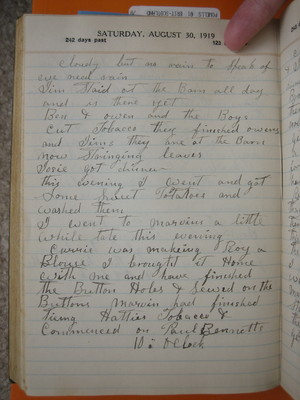 SATURDAY, AUGUST 30, 1919
242 days past
Cloudy but no rain to speak of
eye neul rain
Jim Staid at the Barn all day
and is there yet
Ben & owen and the Boys
Cut Tobacco they finished owens
and Jims they are at the Barn
now Stringing leaves
got dinner
this evening I went and got
Some sweet Potatoes and
washed them
I went to Marvins a little
while late this evening
Carrie was makeing Roy a
Blouse I brought it Home
with me and have finished
the Button Holes & Sewed on the
Buttons Marvin had finished
Hatties Tobacco &
Commenced on Paul Bennetts
10 : OClock